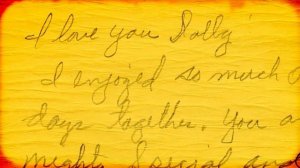 I love you Dolly
I enjoyed so much
days together. You a
might special and